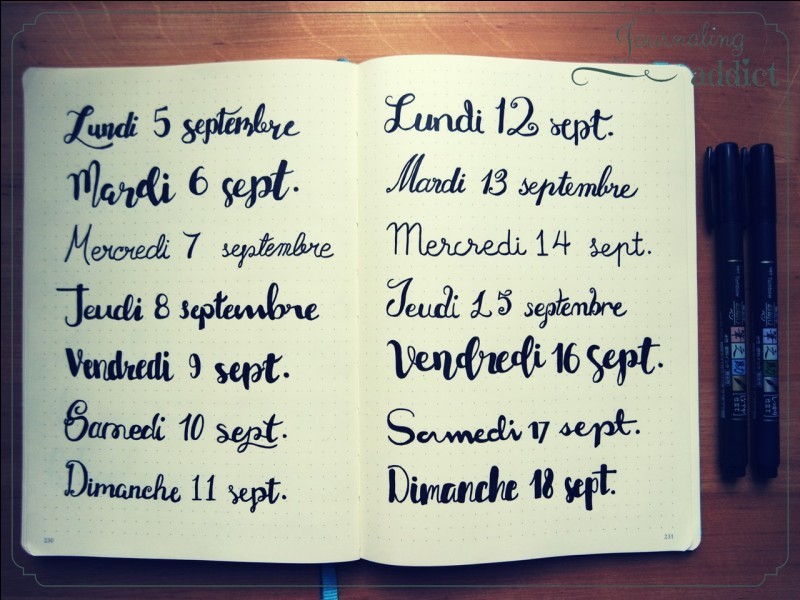 Journaling
addict
Lundi 5 septembre
Mardi 6 sept.
Mercredi 7 septembre
Jeudi 8 septembre
Vendredi 9 sept.
Samedi 10 sept.
Dimanche 11 sept.
230
Lundi 12 sept.
Mardi 13 septembre
Mercredi 14 sept.
Jeudi 15 septembre
Vendredi 16 sept.
Samedi 17 sept.
Dimanche 18 sept.
231